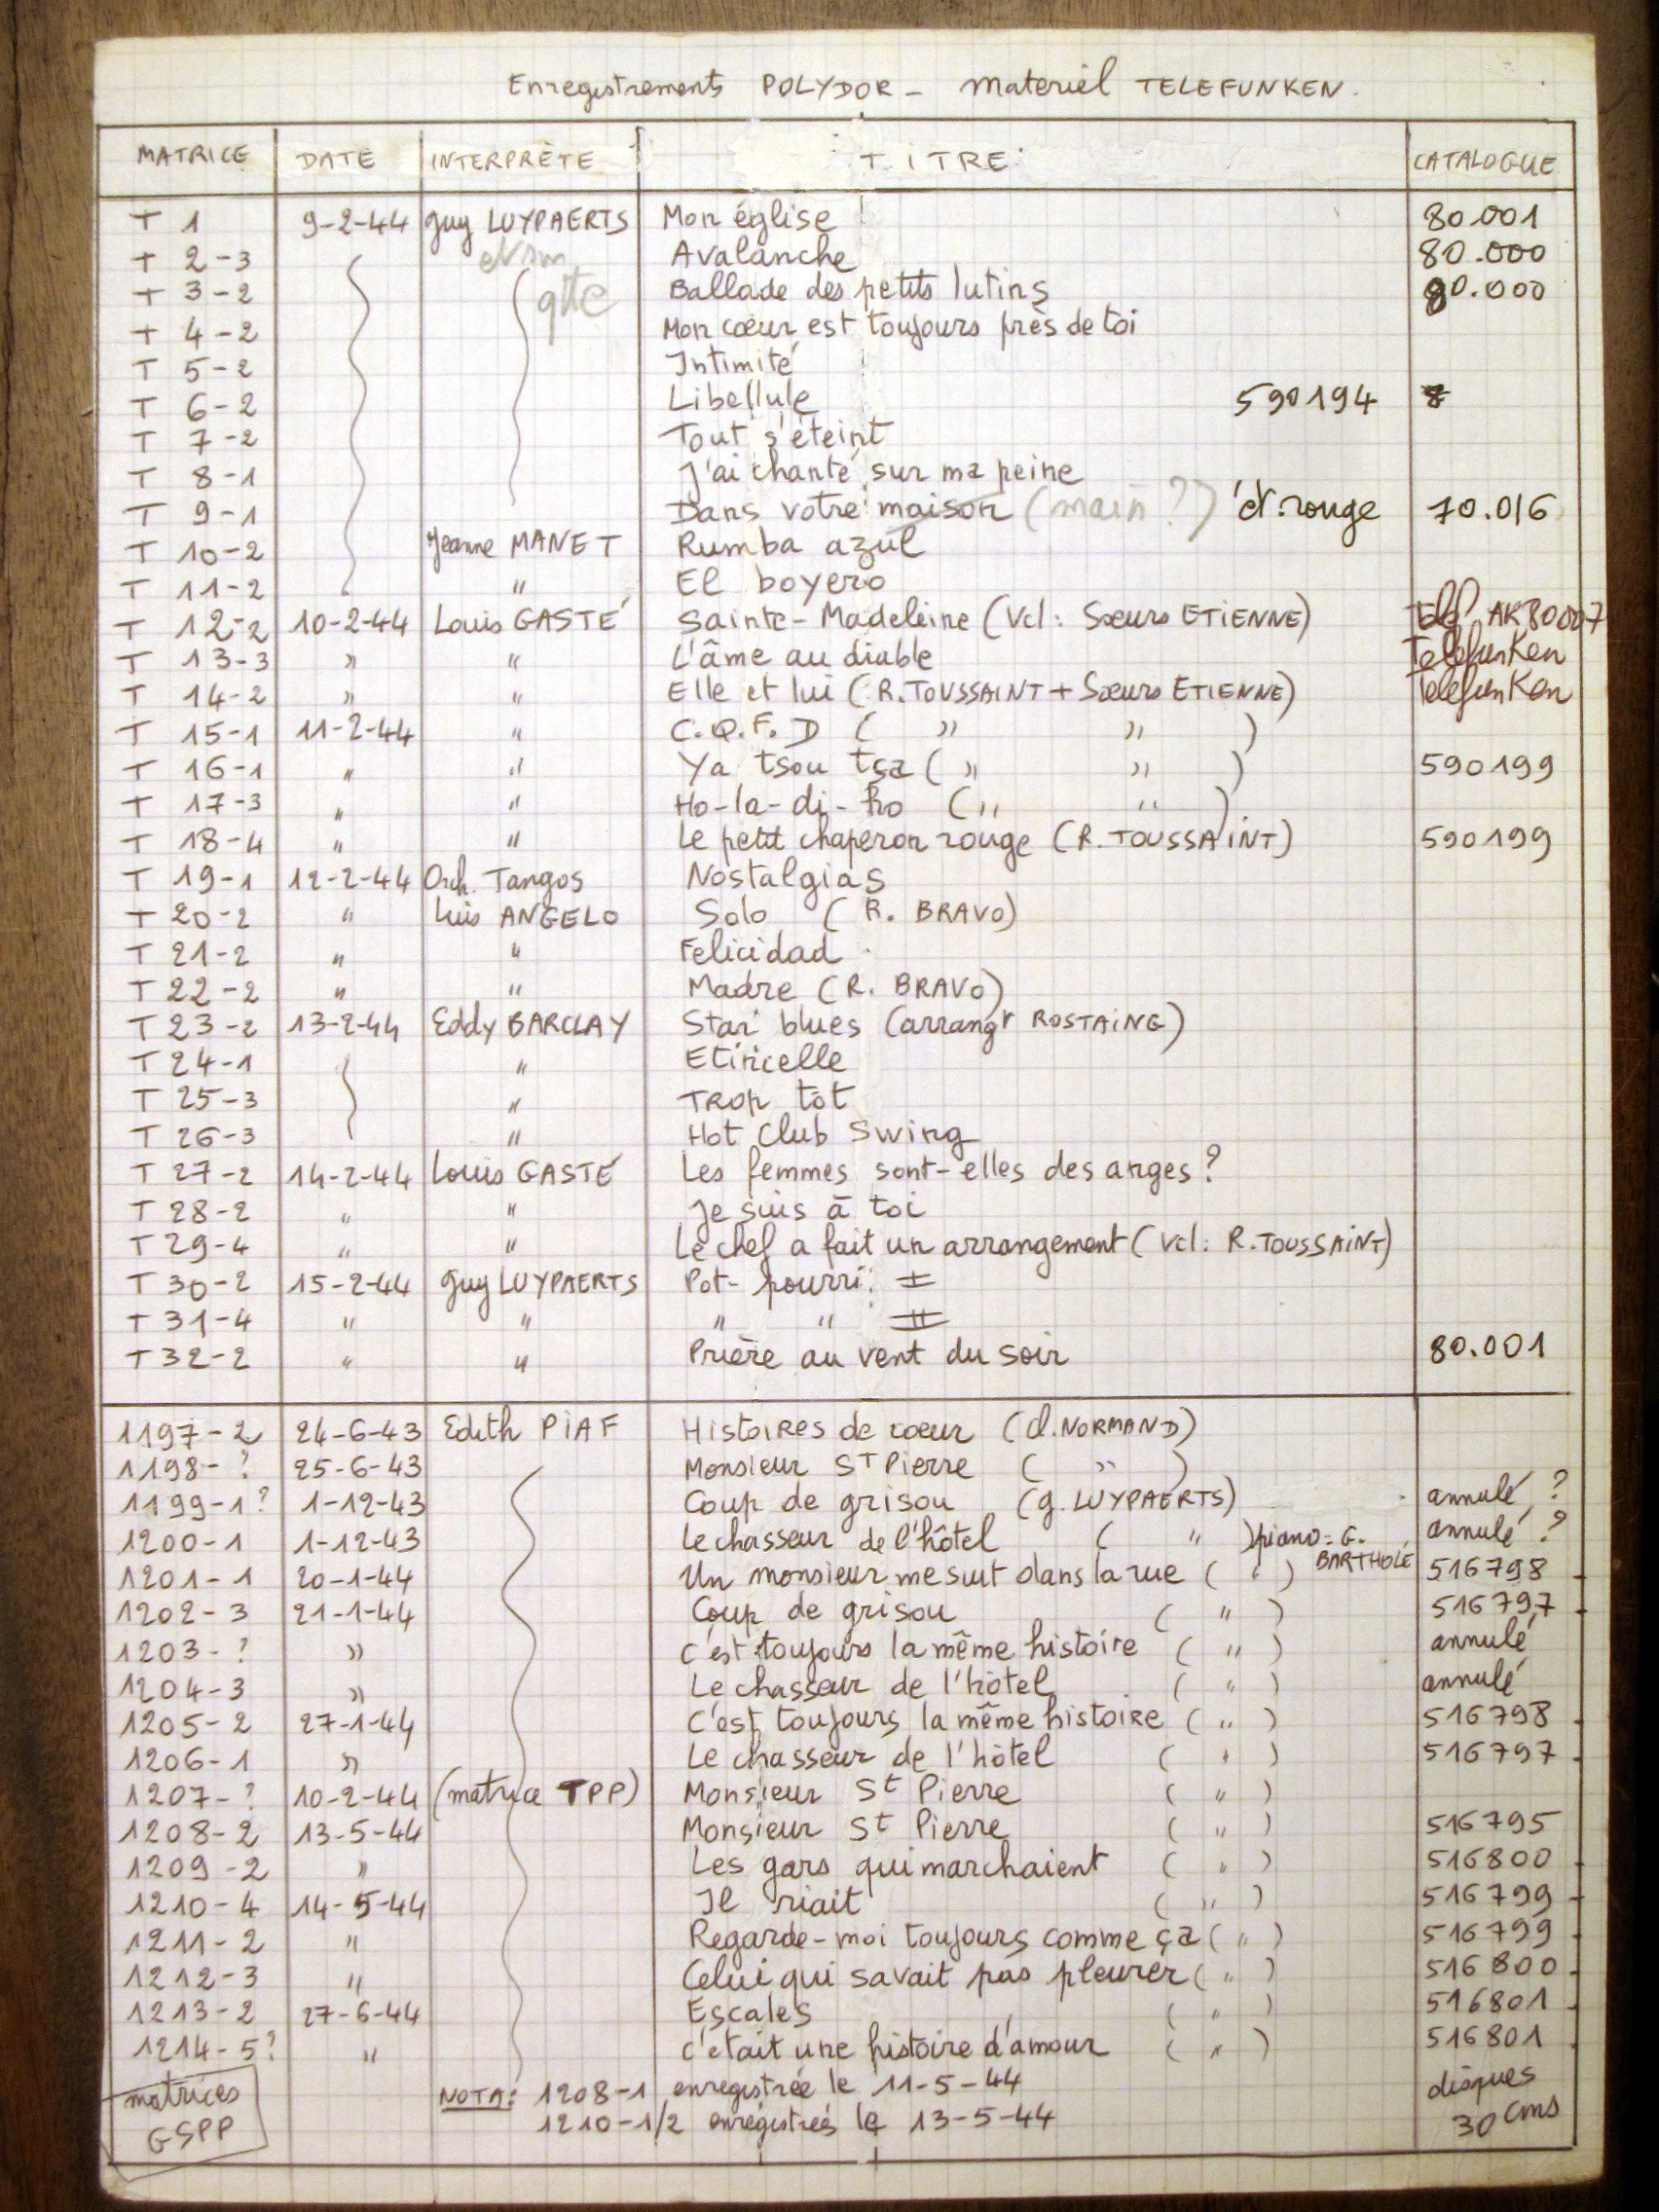 Enregistrements POLYDOR - materiel TELEFUNKEN.
MATRICE DATE INTERPRÈTE TITRE CATALOGUE
T 1 9-2-44 Guy LUYPAERTS Mon église 80.001
T 2-3 Avalanche 80.000
T 3-2 gtte Ballade des petits lutins 80.000
T 4-2 Mon cœur est toujours près de toi
T 5-2 Intimité
T 6-2 Libellule 590194
T 7-2 Tout s'éteint
T 8-1 J'ai chanté sur ma peine
T 9-1 Dans votre maison (main ?) ét. rouge 70.016
T 10-2 Jeanne MANET Rumba azul
T 11-2 " El boyero
T 12-2 10-2-44 Louis GASTÉ Sainte-Madeleine (Vcl: Sœurs ETIENNE) Telef AK80007
T 13-3 " " L'âme au diable Telefunken
T 14-2 " " Elle et lui (R. TOUSSAINT + Sœurs ETIENNE) Telefunken
T 15-1 11-2-44 " C.Q.F.D ( " " )
T 16-1 " " Ya tsou tsa ( " " ) 590199
T 17-3 " " Ho-la-di-ho ( " " )
T 18-4 " " Le petit chaperon rouge (R. TOUSSAINT) 590199
T 19-1 12-2-44 Orch. Tangos Nostalgias
T 20-2 " Luis ANGELO Solo (R. BRAVO)
T 21-2 " " Felicidad
T 22-2 " " Madre (R. BRAVO)
T 23-2 13-2-44 Eddy BARCLAY Star blues (arrangt ROSTAING)
T 24-1 " Etincelle
T 25-3 " Trop tôt
T 26-3 " Hot Club Swing
T 27-2 14-2-44 Louis GASTÉ Les femmes sont-elles des anges ?
T 28-2 " " Je suis à toi
T 29-4 " " Le chef a fait un arrangement (Vcl: R. TOUSSAINT)
T 30-2 15-2-44 Guy LUYPAERTS Pot-pourri: I
T 31-4 " " " " II
T 32-2 " " Prière au vent du soir 80.001
1197-2 24-6-43 Edith PIAF Histoires de cœur (Cl. NORMAND)
1198-? 25-6-43 Monsieur St Pierre ( " )
1199-1? 1-12-43 Coup de grisou (G. LUYPAERTS) annulé ?
1200-1 1-12-43 Le chasseur de l'hôtel ( " ) piano = G. BARTHOLÉ annulé ?
1201-1 20-1-44 Un monsieur me suit dans la rue ( " ) 516798
1202-3 21-1-44 Coup de grisou ( " ) 516797
1203-? " C'est toujours la même histoire ( " ) annulé
1204-3 " Le chasseur de l'hôtel ( " ) annulé
1205-2 27-1-44 C'est toujours la même histoire ( " ) 516798
1206-1 " Le chasseur de l'hôtel ( " ) 516797
1207-? 10-2-44 (matrice TPP) Monsieur St Pierre ( " )
1208-2 13-5-44 Monsieur St Pierre ( " ) 516795
1209-2 " Les gars qui marchaient ( " ) 516800
1210-4 14-5-44 Il riait ( " ) 516799
1211-2 " Regarde-moi toujours comme ça ( " ) 516799
1212-3 " Celui qui savait pas pleurer ( " ) 516800
1213-2 27-6-44 Escales ( " ) 516801
1214-5? " C'était une histoire d'amour ( " ) 516801
matrices GSPP NOTA: 1208-1 enregistrée le 11-5-44 disques
1210-1/2 enregistrés le 13-5-44 30 cms